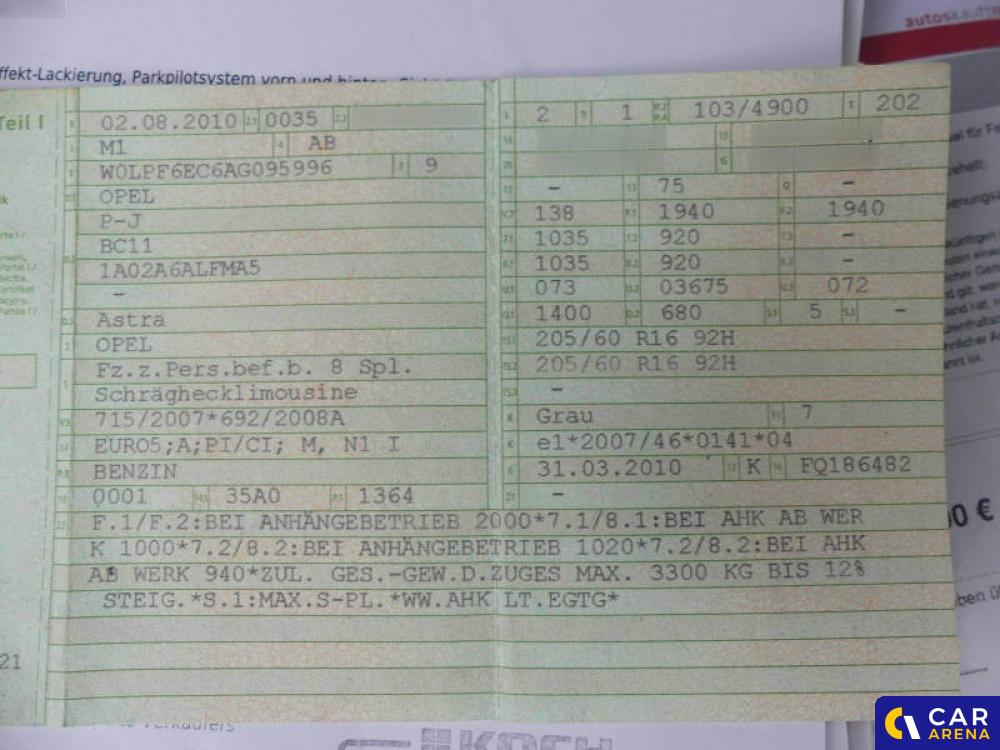 autoskauf
ffekt-Lackierung, Parkpilotsystem vorn und
Teil I
02.08.2010 0035
M1 AB
W0LPF6EC6AG095996 9
OPEL
P-J
BC11
1A02A6ALFMA5
–
Astra
OPEL
Fz.z.Pers.bef.b. 8 Spl.
Schräghecklimousine
715/2007*692/2008A
EURO5;A;PI/CI; M, N1 I
BENZIN
0001 35A0 1364
2 1 103/4900 202
– 75 –
138 1940 1940
1035 920 –
1035 920 –
073 03675 072
1400 680 5 –
205/60 R16 92H
205/60 R16 92H
–
Grau 7
e1*2007/46*0141*04
31.03.2010 K FQ186482
–
F.1/F.2:BEI ANHÄNGEBETRIEB 2000*7.1/8.1:BEI AHK AB WER
K 1000*7.2/8.2:BEI ANHÄNGEBETRIEB 1020*7.2/8.2:BEI AHK
AB WERK 940*ZUL. GES.-GEW.D.ZUGES MAX. 3300 KG BIS 12%
STEIG.*S.1:MAX.S-PL.*WW.AHK LT.EGTG*
21
0 €
CAR
ARENA